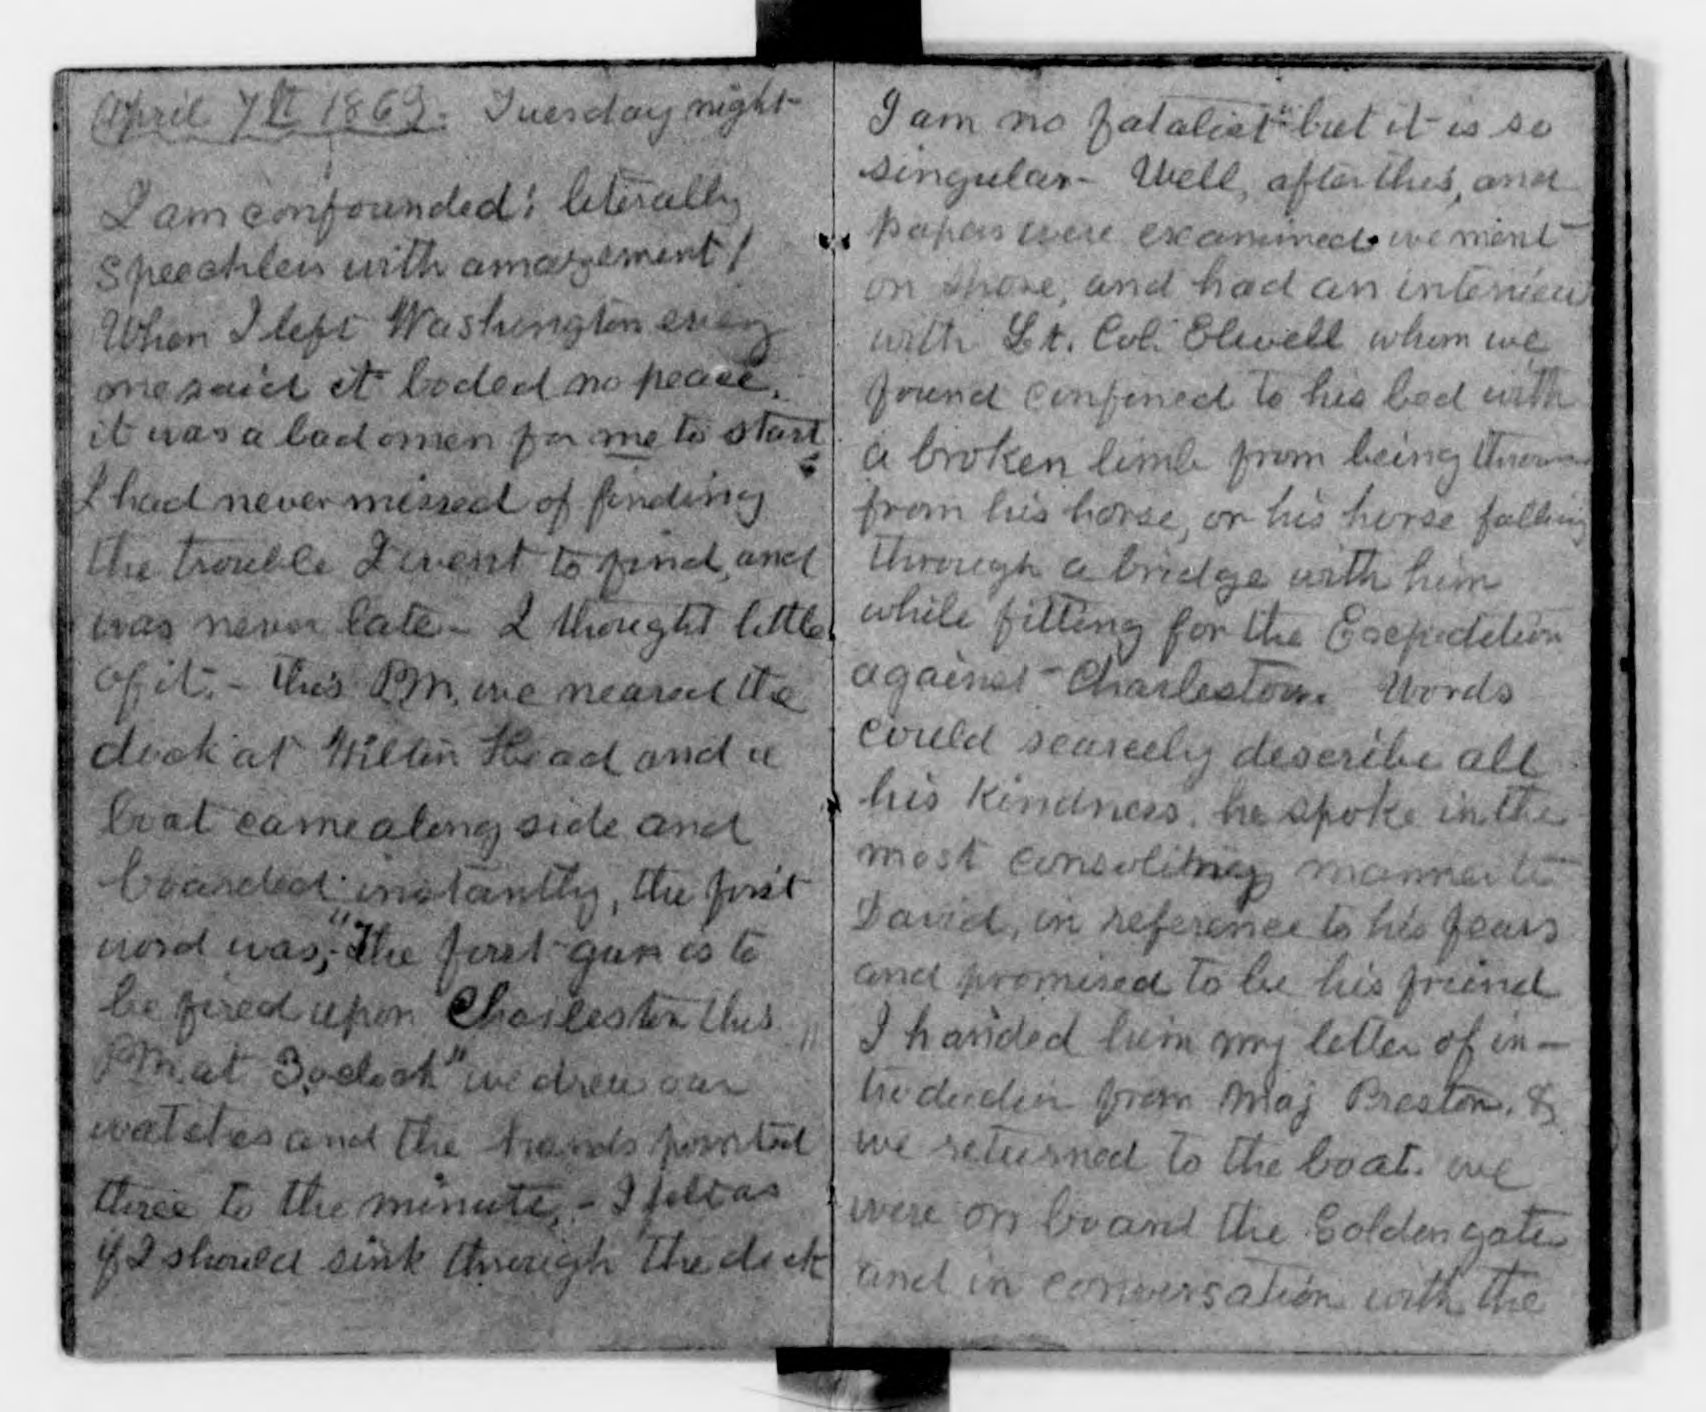 April 7th 1863. Tuesday night
I am confounded! literally
speechless with amazement!
When I left Washington every
one said it boded no peace,
it was a bad omen for me to start
I had never missed of finding
the trouble I went to find, and
was never late - I thought little
of it. - This P.M. we neared the
dock at Hilton Head and a
boat came along side and
boarded instantly, the first
word was, "The first gun is to
be fired upon Charleston this
P.M. at 3 oclock" we drew our
watches and the hands pointed
three to the minute, - I felt as
if I should sink through the deck
I am no fatalist" but it is so
singular - Well, after this, and
papers were examined. we went
on shore, and had an interview
with Lt. Col. Elwell whom we
found confined to his bed with
a broken limb from being thrown
from his horse, or his horse falling
through a bridge with him
while fitting for the Expedition
against Charleston. Words
could scarcely describe all
his kindness. he spoke in the
most consoling manner to
David, in reference to his fears
and promised to be his friend
I handed him my letter of in-
troduction from Maj Preston, &
we returned to the boat. we
were on board the Golden gate
and in conversation with the